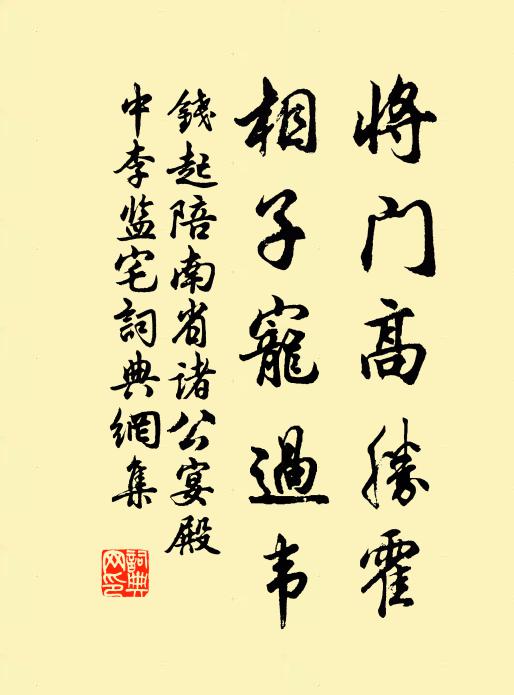 将门高勝霍
相子寵過韦
錢起陪南省诸公宴殿
中李监宅詞典網集
詞典
网印